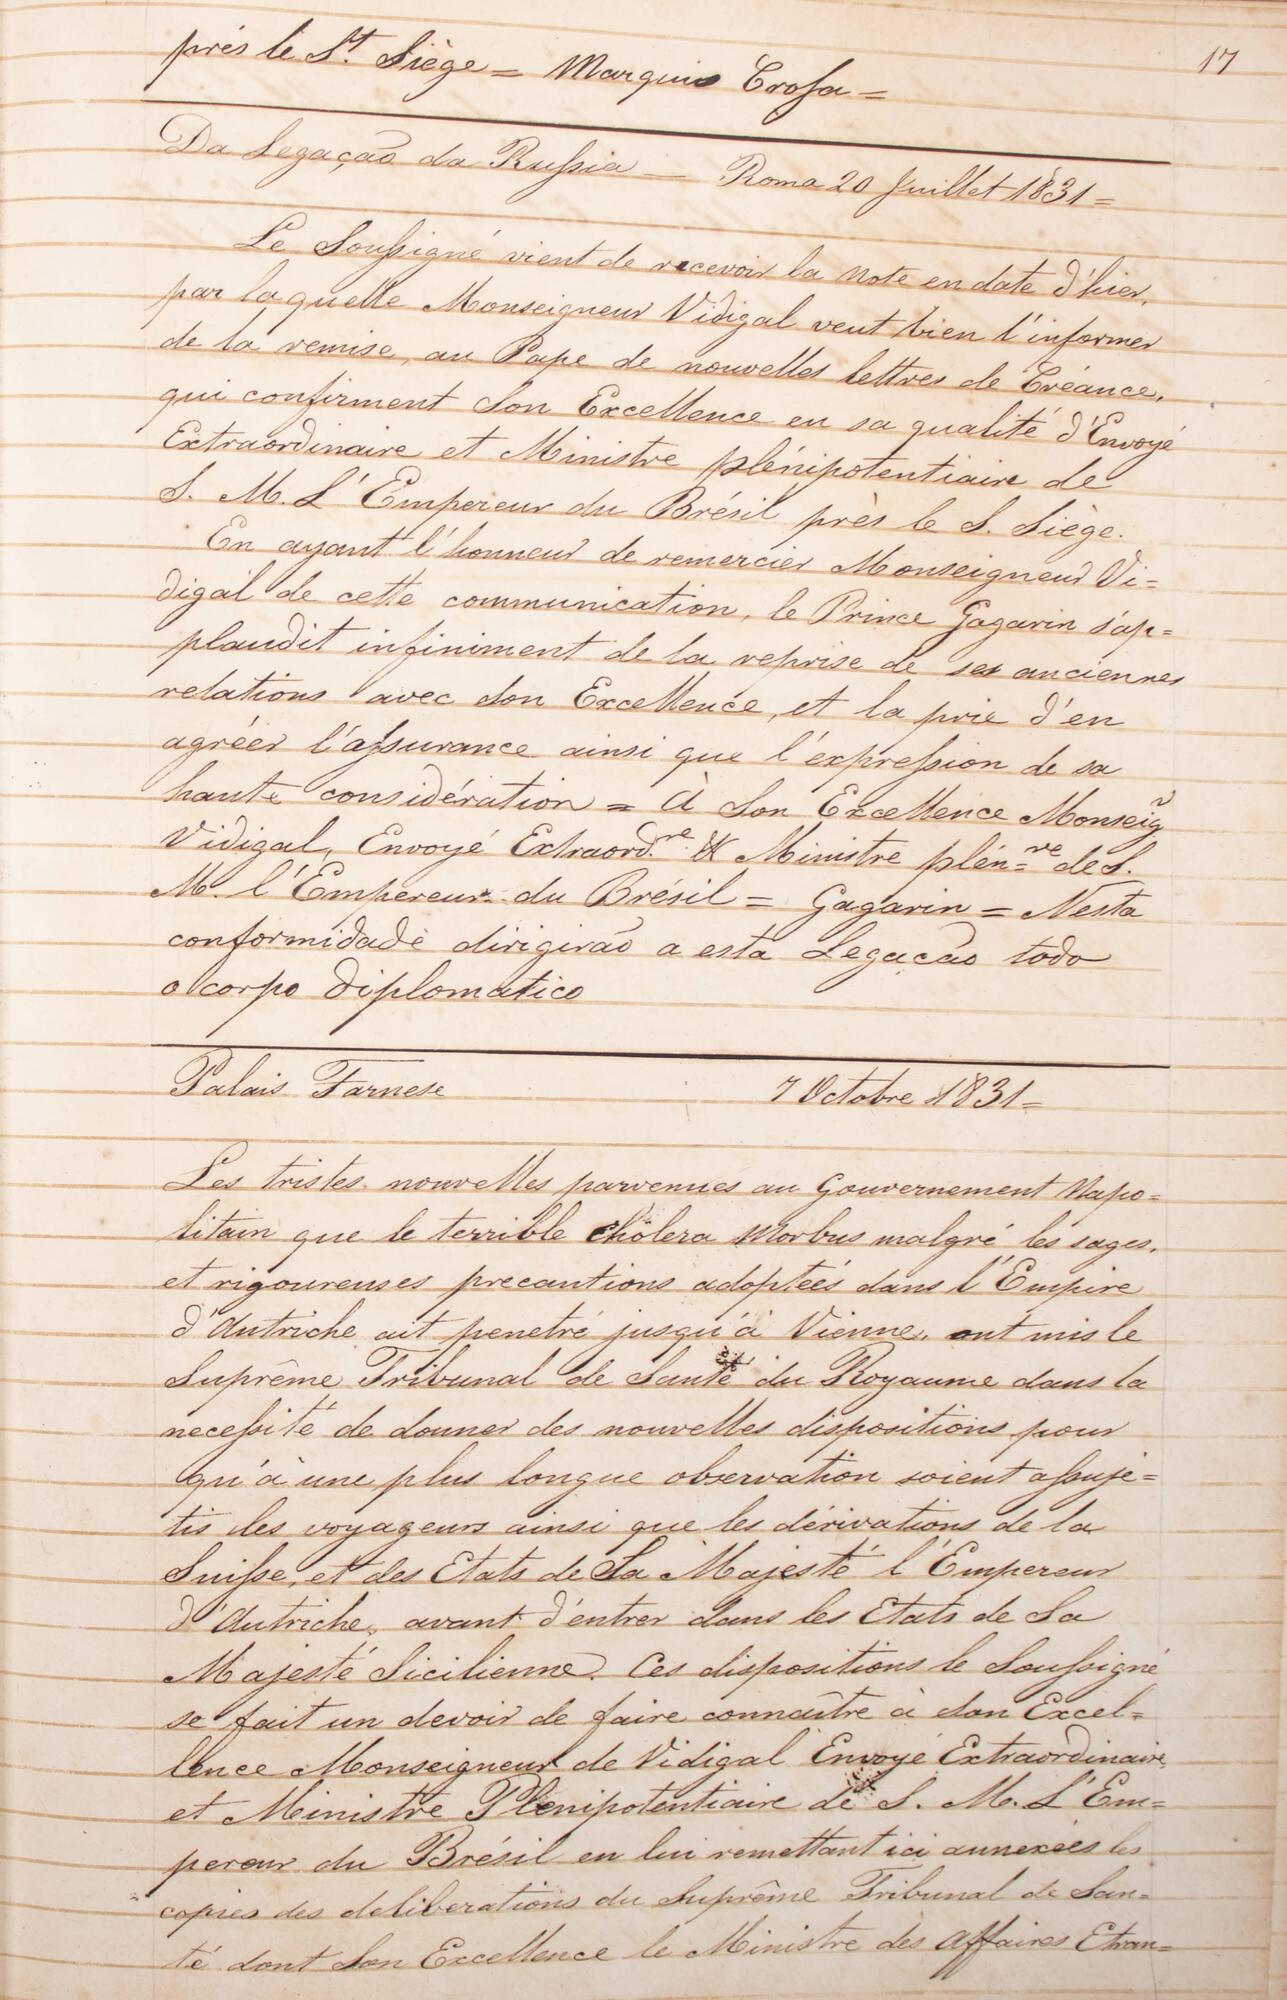 17
près le St. Siège = Marquis Crosa =
Da Legação da Russia — Roma 20 Juillet 1831 =
Le Soussigné vient de recevoir la note en date d'hier,
par laquelle Monseigneur Vidigal veut bien l'informer
de la remise, au Pape de nouvelles lettres de Créance,
qui confirment Son Excellence en sa qualité d'Envoyé
Extraordinaire et Ministre plénipotentiaire de
S. M. L'Empereur du Brésil près le S. Siège.
En ayant l'honneur de remercier Monseigneur Vi=
digal de cette communication, le Prince Gagarin s'ap=
plaudit infiniment de la reprise de ses anciennes
relations avec Son Excellence, et la prie d'en
agréer l'assurance ainsi que l'expression de sa
haute considération = À Son Excellence Monseigr
Vidigal, Envoyé Extraord.re & Ministre plén=re de S.
M. l'Empereur du Brésil = Gagarin = Nesta
conformidade dirigirão a esta Legação todo
o corpo diplomatico
Palais Farnese 7 Octobre 1831 =
Les tristes nouvelles parvenues au Gouvernement Napo=
litain que le terrible Cholera Morbus malgré les sages,
et rigoureuses precautions adoptées dans l'Empire
d'Autriche ait penetré jusqu'à Vienne, ont mis le
Suprême Tribunal de Santé du Royaume dans la
necessité de donner des nouvelles dispositions pour
qu'à une plus longue observation soient assuje=
tis les voyageurs ainsi que les dérivations de la
Suisse, et des Etats de Sa Majesté l'Empereur
d'Autriche, avant d'entrer dans les Etats de Sa
Majesté Sicilienne. Ces dispositions le Soussigné
se fait un devoir de faire connaître à Son Excel=
lence Monseigneur de Vidigal Envoyé Extraordinaire,
et Ministre Plenipotentiaire de S. M. L'Em=
pereur du Brésil en lui remettant ici annexées les
copies des deliberations du Suprême Tribunal de San=
té dont Son Excellence le Ministre des Affaires Etran=